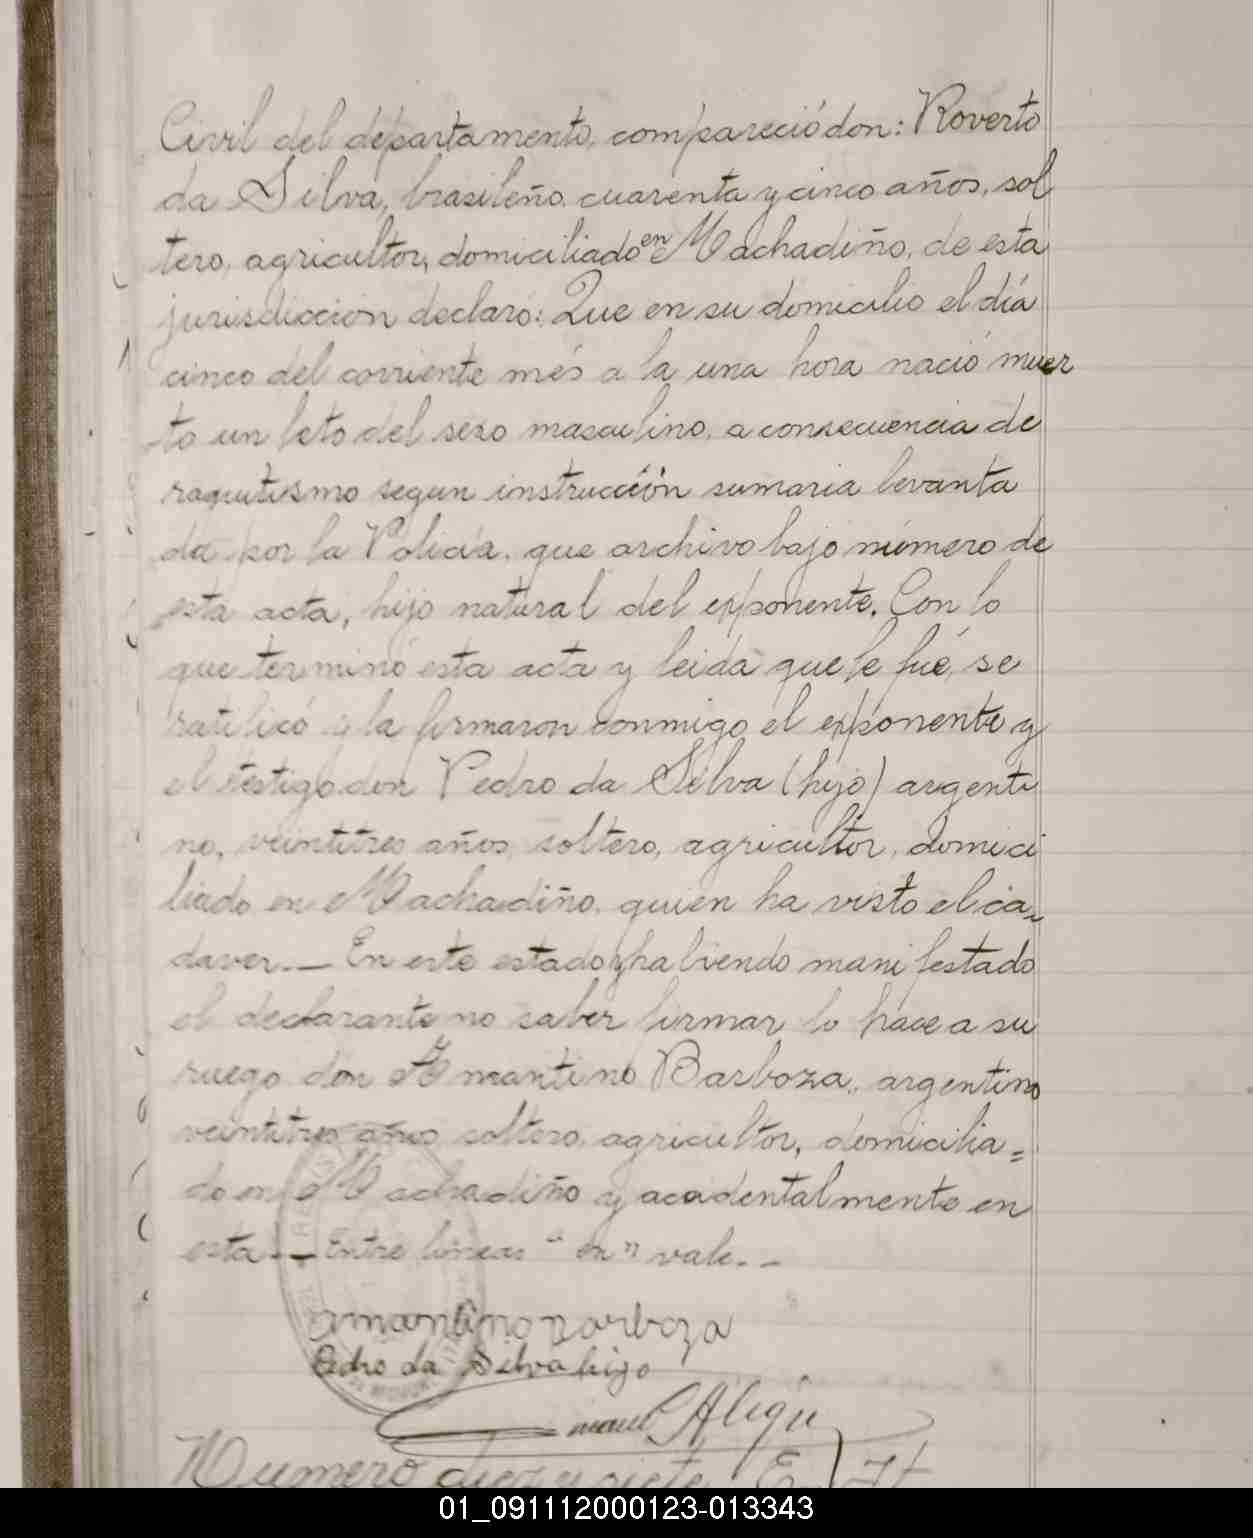 Civil del departamento, compareció don: Roverto
da Silva, brasileño, cuarenta y cinco años, sol
tero, agricultor, domiciliado en Machadiño, de esta
jurisdiccion declaró: Que en su domicilio el día
cinco del corriente més a la una hora nació muer
to un feto del sexo masculino, a consecuencia de
raquitismo segun instrucción sumaria levanta
da por la Policia, que archivo bajo número de
esta acta, hijo natural del exponente. Con lo
que terminó esta acta y leida que le fué, se
ratificó y la firmaron conmigo el exponente y
el testigo don Pedro da Silva (hijo) argenti
no, veintitres años, soltero, agricultor, domici
liado en Machadiño, quien ha visto el ca-
daver.— En este estado y habiendo manifestado
el declarante no saber firmar lo hace a su
ruego don Amantino Barboza, argentino
veintitres años soltero, agricultor, domicilia=
do en Machadiño y accidentalmente en
esta.— Entre lineas "en" vale.--
amantino barboza
Pedro da Silva hijo
Alegu
Numero diez y siete
01_091112000123-013343